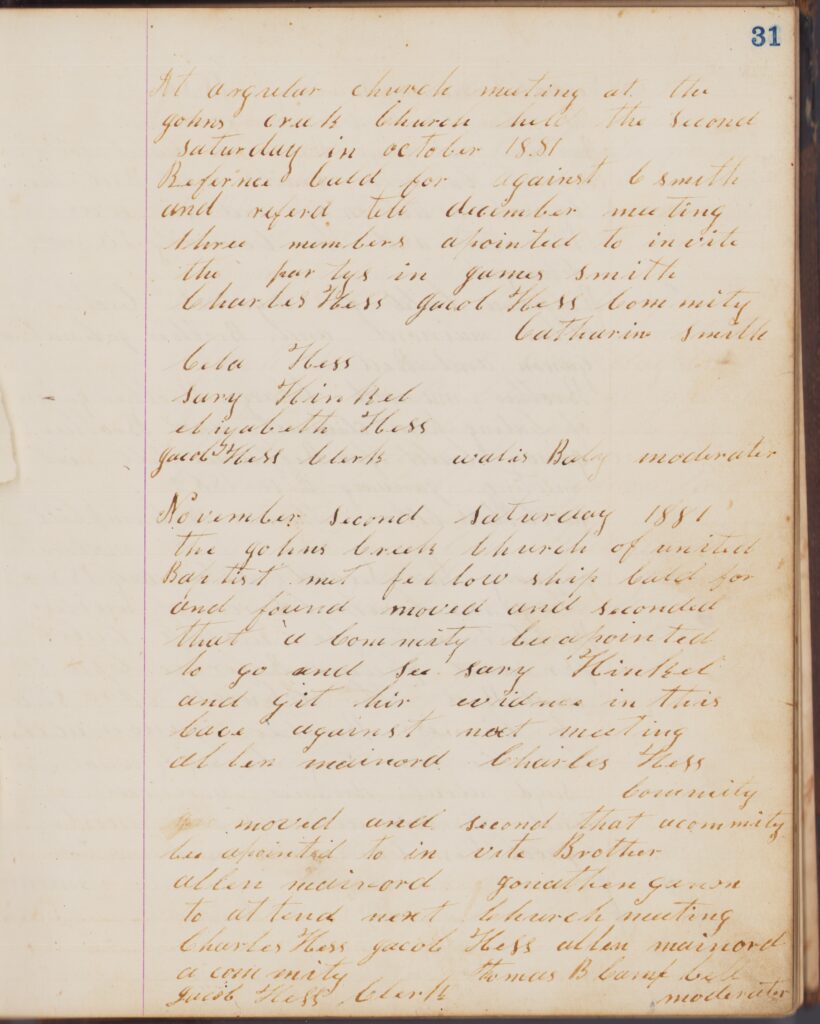 31
At argular church meeting at the
gohns creek Church held the second
saturday in october 1881
Refernce Calld for against C smith
and referd till december meeting
three members apointed to invite
the partys in games smith
Charles Hess gacob Hess Commity
Catharin smith
Cela Hess
sary Hinkel
elizabeth Hess
gacob Hess Clerk walis Baly moderater
November second saturday 1881
the gohns Creek Church of united
Baptist met fellow ship Calld for
and found moved and seconded
that a Commity bee apointed
to go and see sary Hinkel
and git hir evidnce in this
Cace against next meeting
allen mainord Charles Hess
Commity
moved and second that acommity
bee apointed to in vite Brother
allen mainord gonathen
to attend next Church meeting
Charles Hess gacob Hess allen mainord
a commity thomas B Camp bell
gacob Hess Clerk moderater